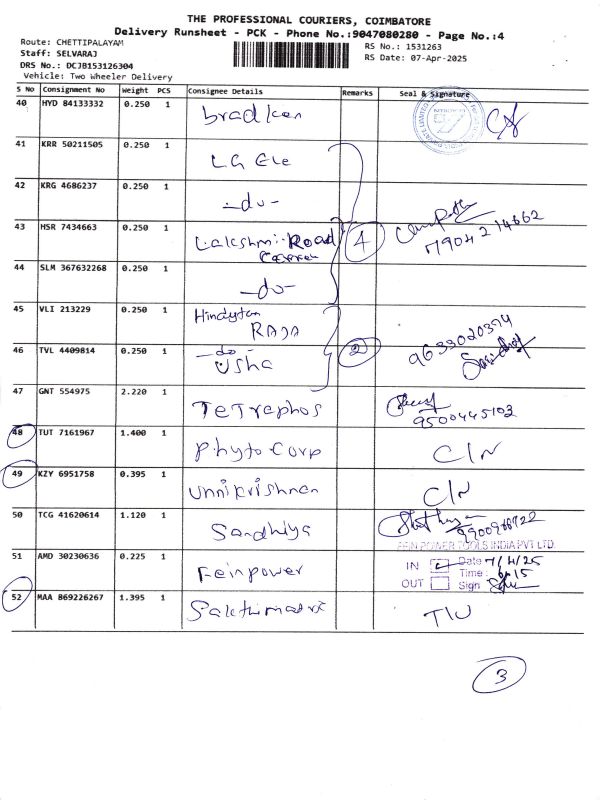 THE PROFESSIONAL COURIERS, COIMBATORE
Delivery Runsheet - PCK - Phone No.:9047080280 - Page No.:4
Route: CHETTIPALAYAM
Staff: SELVARAJ
DRS No.: DCJB153126304
Vehicle: Two Wheeler Delivery
RS No.: 1531263
RS Date: 07-Apr-2025
S No Consignment No Weight PCS Consignee Details Remarks Seal & Signature
40 HYD 84133332 0.250 1 bradken
41 KRR 50211505 0.250 1 LG Ele
42 KRG 4686237 0.250 1 -do-
43 HSR 7434663 0.250 1 Lakshmi Road 4 7904214662
44 SLM 367632268 0.250 1 -do-
45 VLI 213229 0.250 1 Hindustan
RAJA
46 TVL 4409814 0.250 1 -do- 2 9633020374
Usha
47 GNT 554975 2.220 1 Tetraphos 9500445103
48 TUT 7161967 1.400 1 Phyto Corp C/N
49 KZY 6951758 0.395 1 Unnikrishnan C/N
50 TCG 41620614 1.120 1 Sandhiya
51 AMD 30230636 0.225 1 Feinpower
POWER TOOLS INDIA PVT LTD
IN Date 7/4/25
Time : 6.15
OUT Sign
52 MAA 869226267 1.395 1 Sakthimatri T/U
3